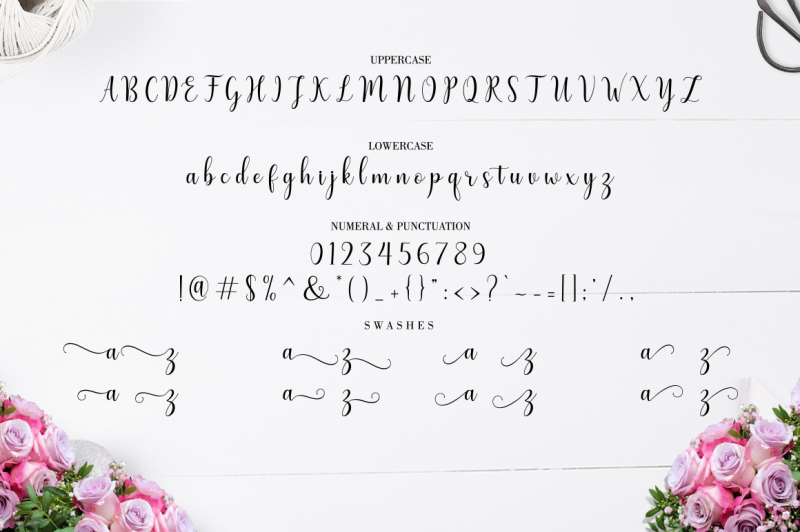 UPPERCASE
A B C D E F G H I J K L M N O P Q R S T U V W X Y Z
LOWERCASE
a b c d e f g h i j k l m n o p q r s t u v w x y z
NUMERAL & PUNCTUATION
0 1 2 3 4 5 6 7 8 9
! @ # $ % ^ & * ( ) _ + { } " : < > ? ` ~ - = [ ] ; ' / . ,
SWASHES
a z a z a z a z
a z a z a z a z